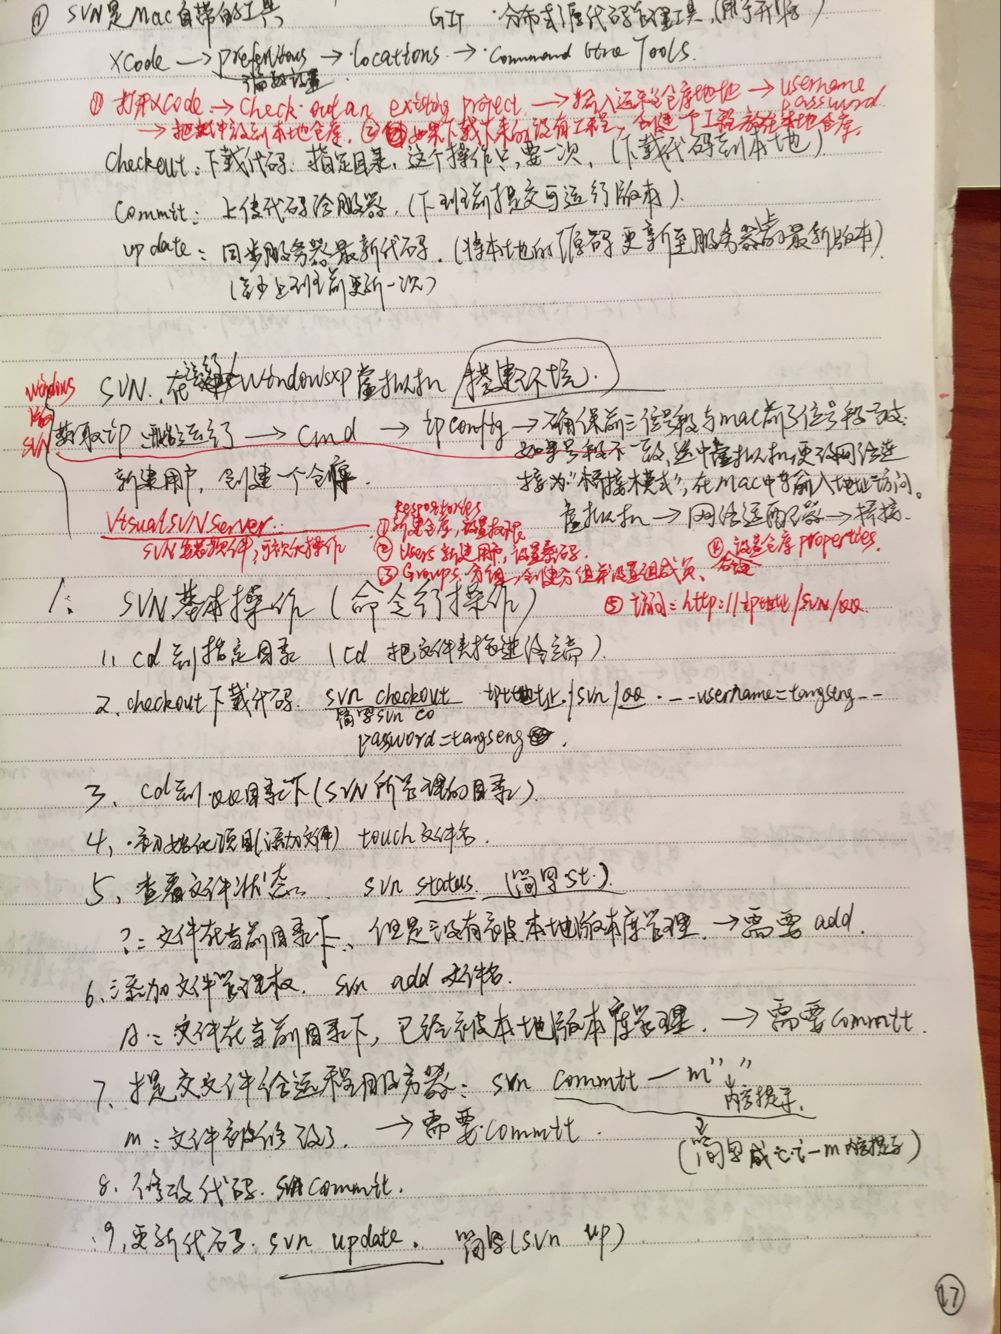 ① SVN是Mac自带的工具 GIT 分布式源代码管理工具
Xcode → preferntous → locations → Command Line Tools.
偏好设置
① 打开Xcode → check out an existing project → 输入远程仓库地址 → username password
② 如果下载下来的没有工程, 创建一个工程放在本地仓库.
checkout: 下载代码. 指定目录, 这个操作只要一次, (下载代码到本地)
Commit: 上传代码给服务器, (下班前提交可运行版本).
update: 同步服务器最新代码. (将本地的源码更新至服务器的最新版本)
(至少上班前更新一次)
SVN. 在 Windowsxp虚拟机 搭建环境.
windows
SVN
获取ip 开始运行 → cmd → ipconfig → 确保前三位号段与mac前三位号段一致.
如果号段不一致, 选中虚拟机更改网络连
新建用户, 创建一个仓库. 接为"桥接模式", 在Mac中输入地址访问.
虚拟机 → 网络适配器 → 桥接.
VisualSVNServer
SVN
Repositories
① 新建仓库, 设置权限.
② Users 新建用户, 设置密码.
③ Groups 分组, 创建分组并设置组成员.
④ 设置仓库properties.
⑤ 访问: http://ip地址/svn/QQ
1. SVN基本操作 (命令行操作)
1. cd 到指定目录 (cd 把文件夹拖进终端).
2. checkout下载代码. svn checkout ip地址/svn/QQ --username=tangseng --
简写svn co
password=tangseng.
3. cd到QQ目录下(SVN所管理的目录)
4. 初始化项目(添加文件) touch文件名.
5. 查看文件状态. svn status. (简写st.)
?: 文件在当前目录下, 但是没有被本地版本库管理. → 需要add.
6. 添加文件管理权. svn add 文件名.
A: 文件在当前目录下, 已经被本地版本库管理. → 需要commit.
7. 提交文件给远程服务器: svn commit -m" "
内容提示.
m: 文件被修改了. → 需要commit.
(简写成ci -m 内容提示)
8. 修改代码. svn commit.
9. 更新代码. svn update. 简写(svn up)
17